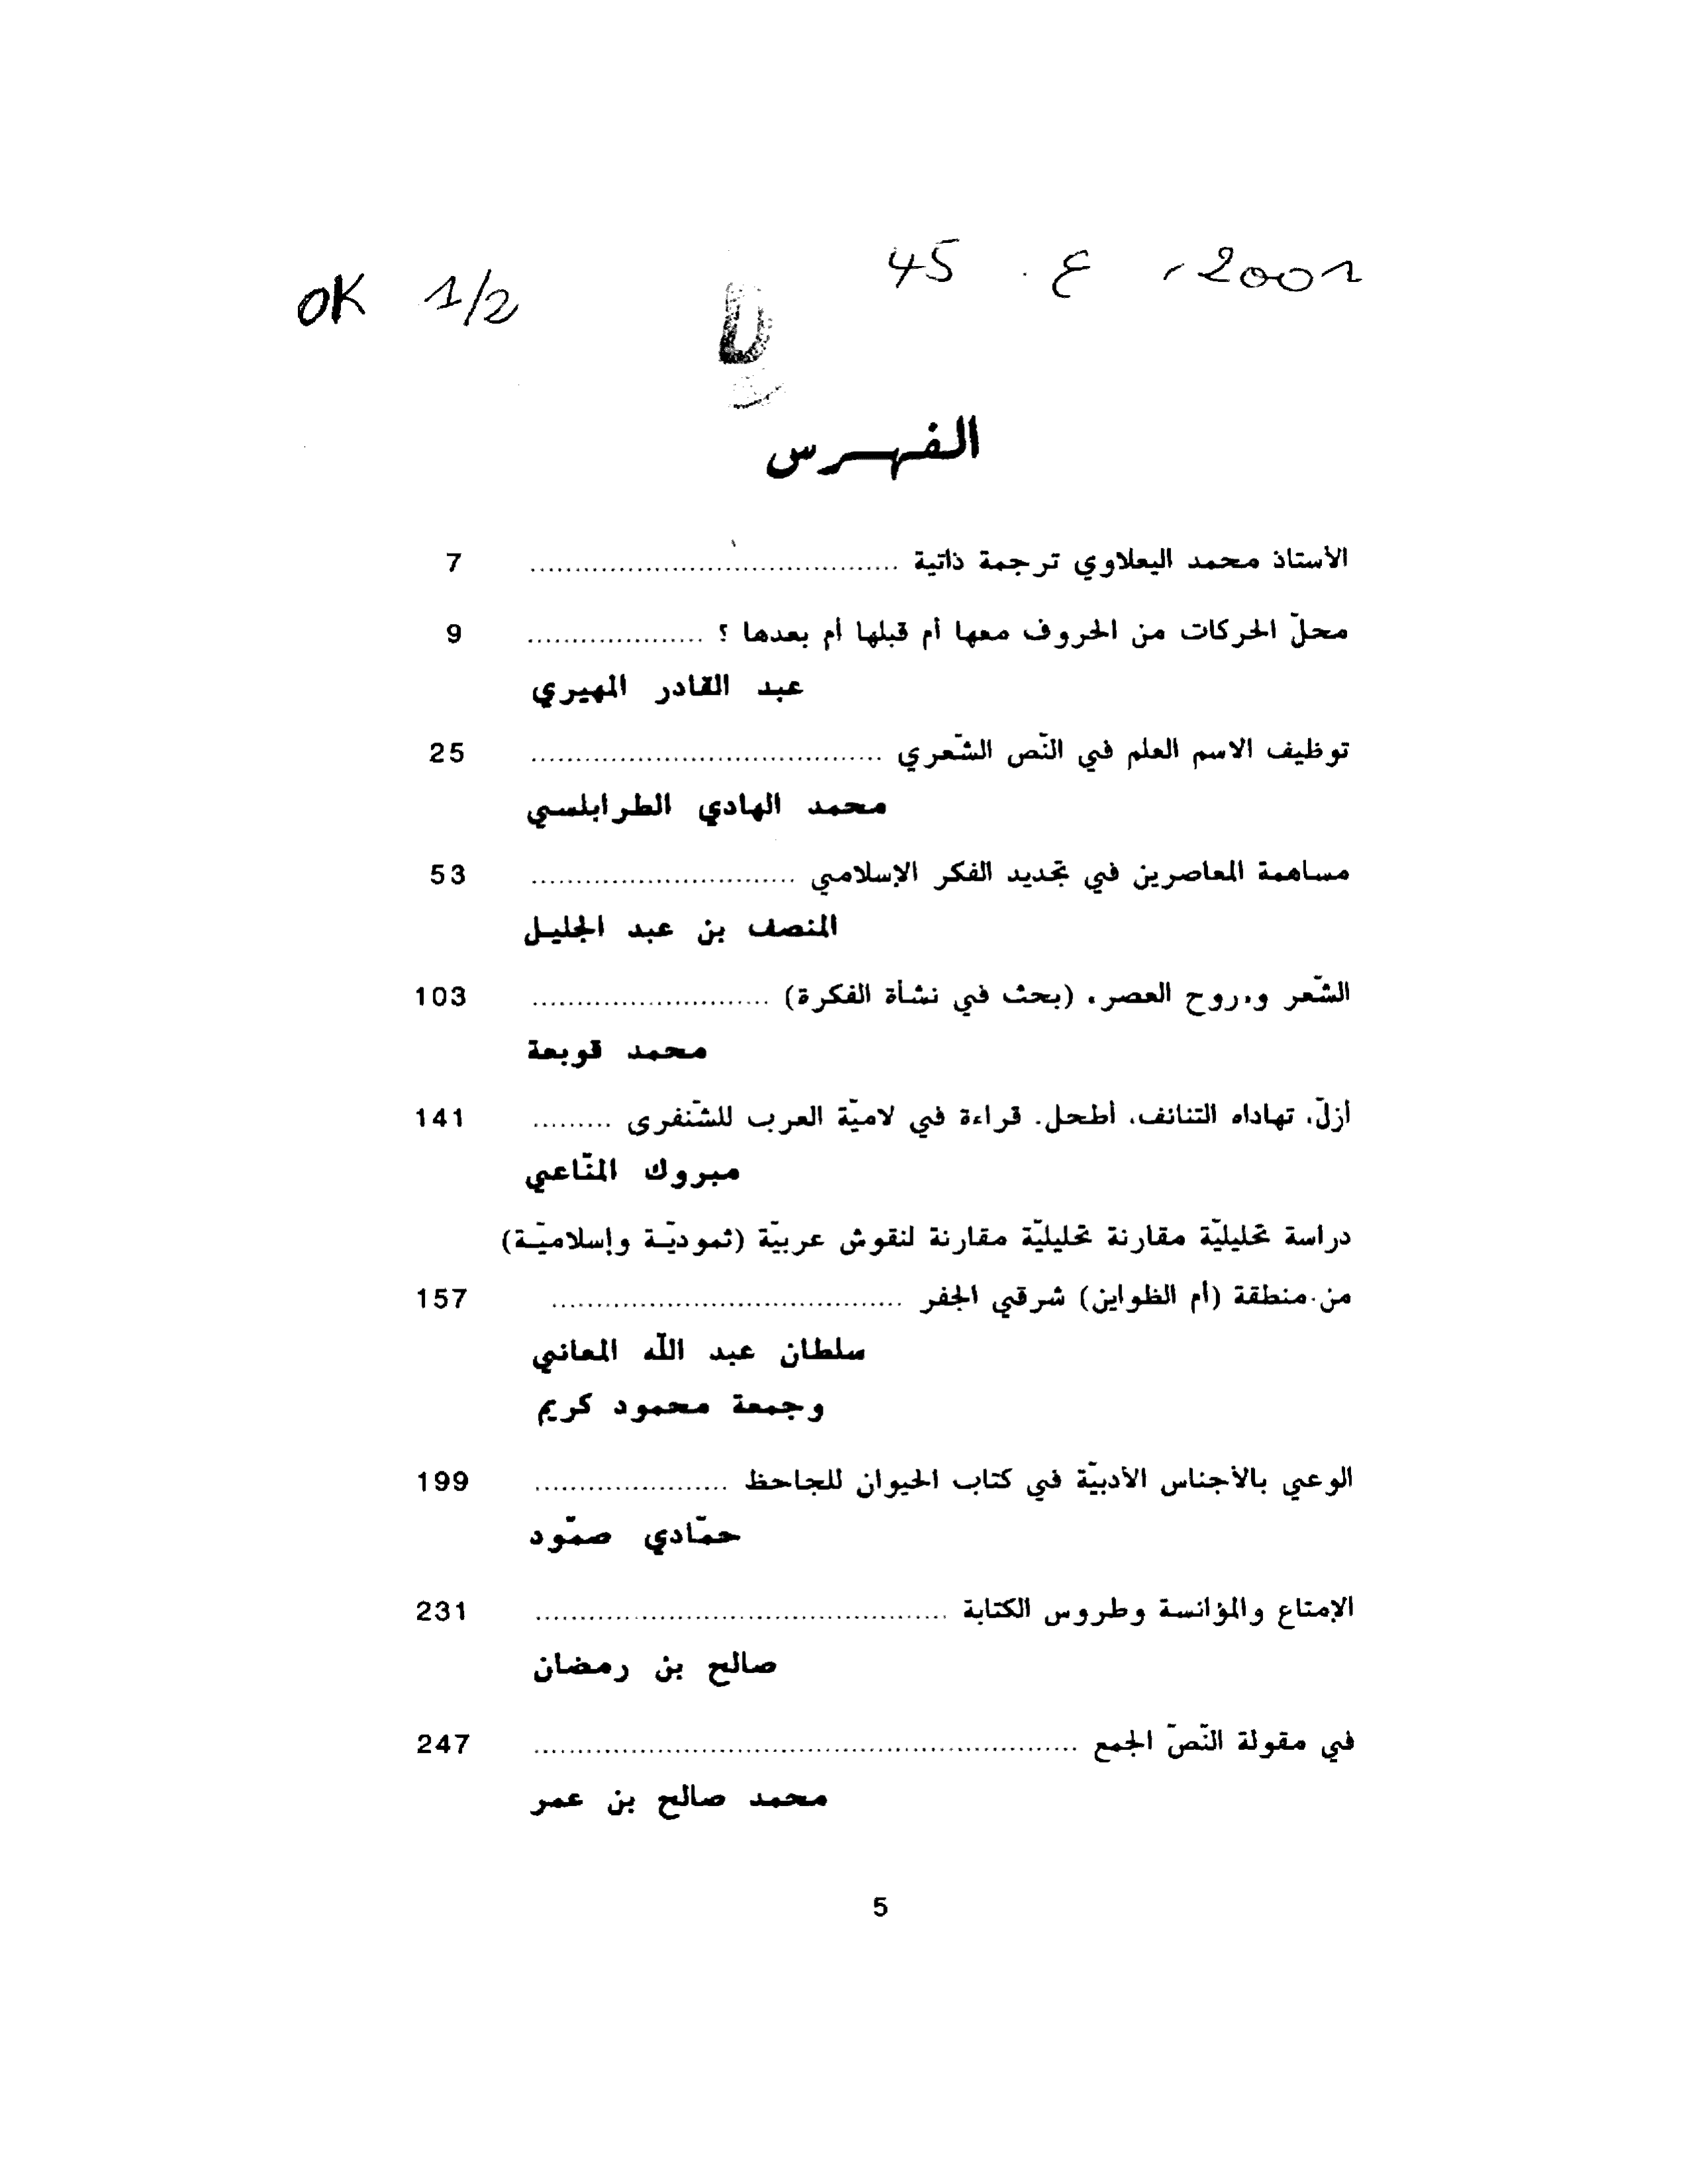 2001 ، ع . 45
OK 1/2
الفهرس
الأستاذ محمد اليعلاوي ترجمة ذاتية ........................................ 7
محلّ الحركات من الحروف معها أم قبلها أم بعدها ؟ .................... 9
عبد القادر المهيري
توظيف الاسم العلم في النّص الشّعري ........................................ 25
محمد الهادي الطرابلسي
مساهمة المعاصرين في تجديد الفكر الإسلامي .............................. 53
المنصف بن عبد الجليل
الشّعر و«روح العصر» (بحث في نشأة الفكرة) ........................... 103
محمد قوبعة
أزلّ، تهاداه التنائف، أطحل. قراءة في لاميّة العرب للشّنفرى ......... 141
مبروك المنّاعي
دراسة تحليليّة مقارنة تحليليّة مقارنة لنقوش عربيّة (ثموديّة وإسلاميّة)
من منطقة (أم الظواين) شرقي الجفر ........................................ 157
سلطان عبد اللّه المعاني
وجمعة محمود كريم
الوعي بالأجناس الأدبيّة في كتاب الحيوان للجاحظ ...................... 199
حمّادي صمّود
الإمتاع والمؤانسة وطروس الكتابة ............................................... 231
صالح بن رمضان
في مقولة النّصّ الجمع .............................................................. 247
محمد صالح بن عمر
5